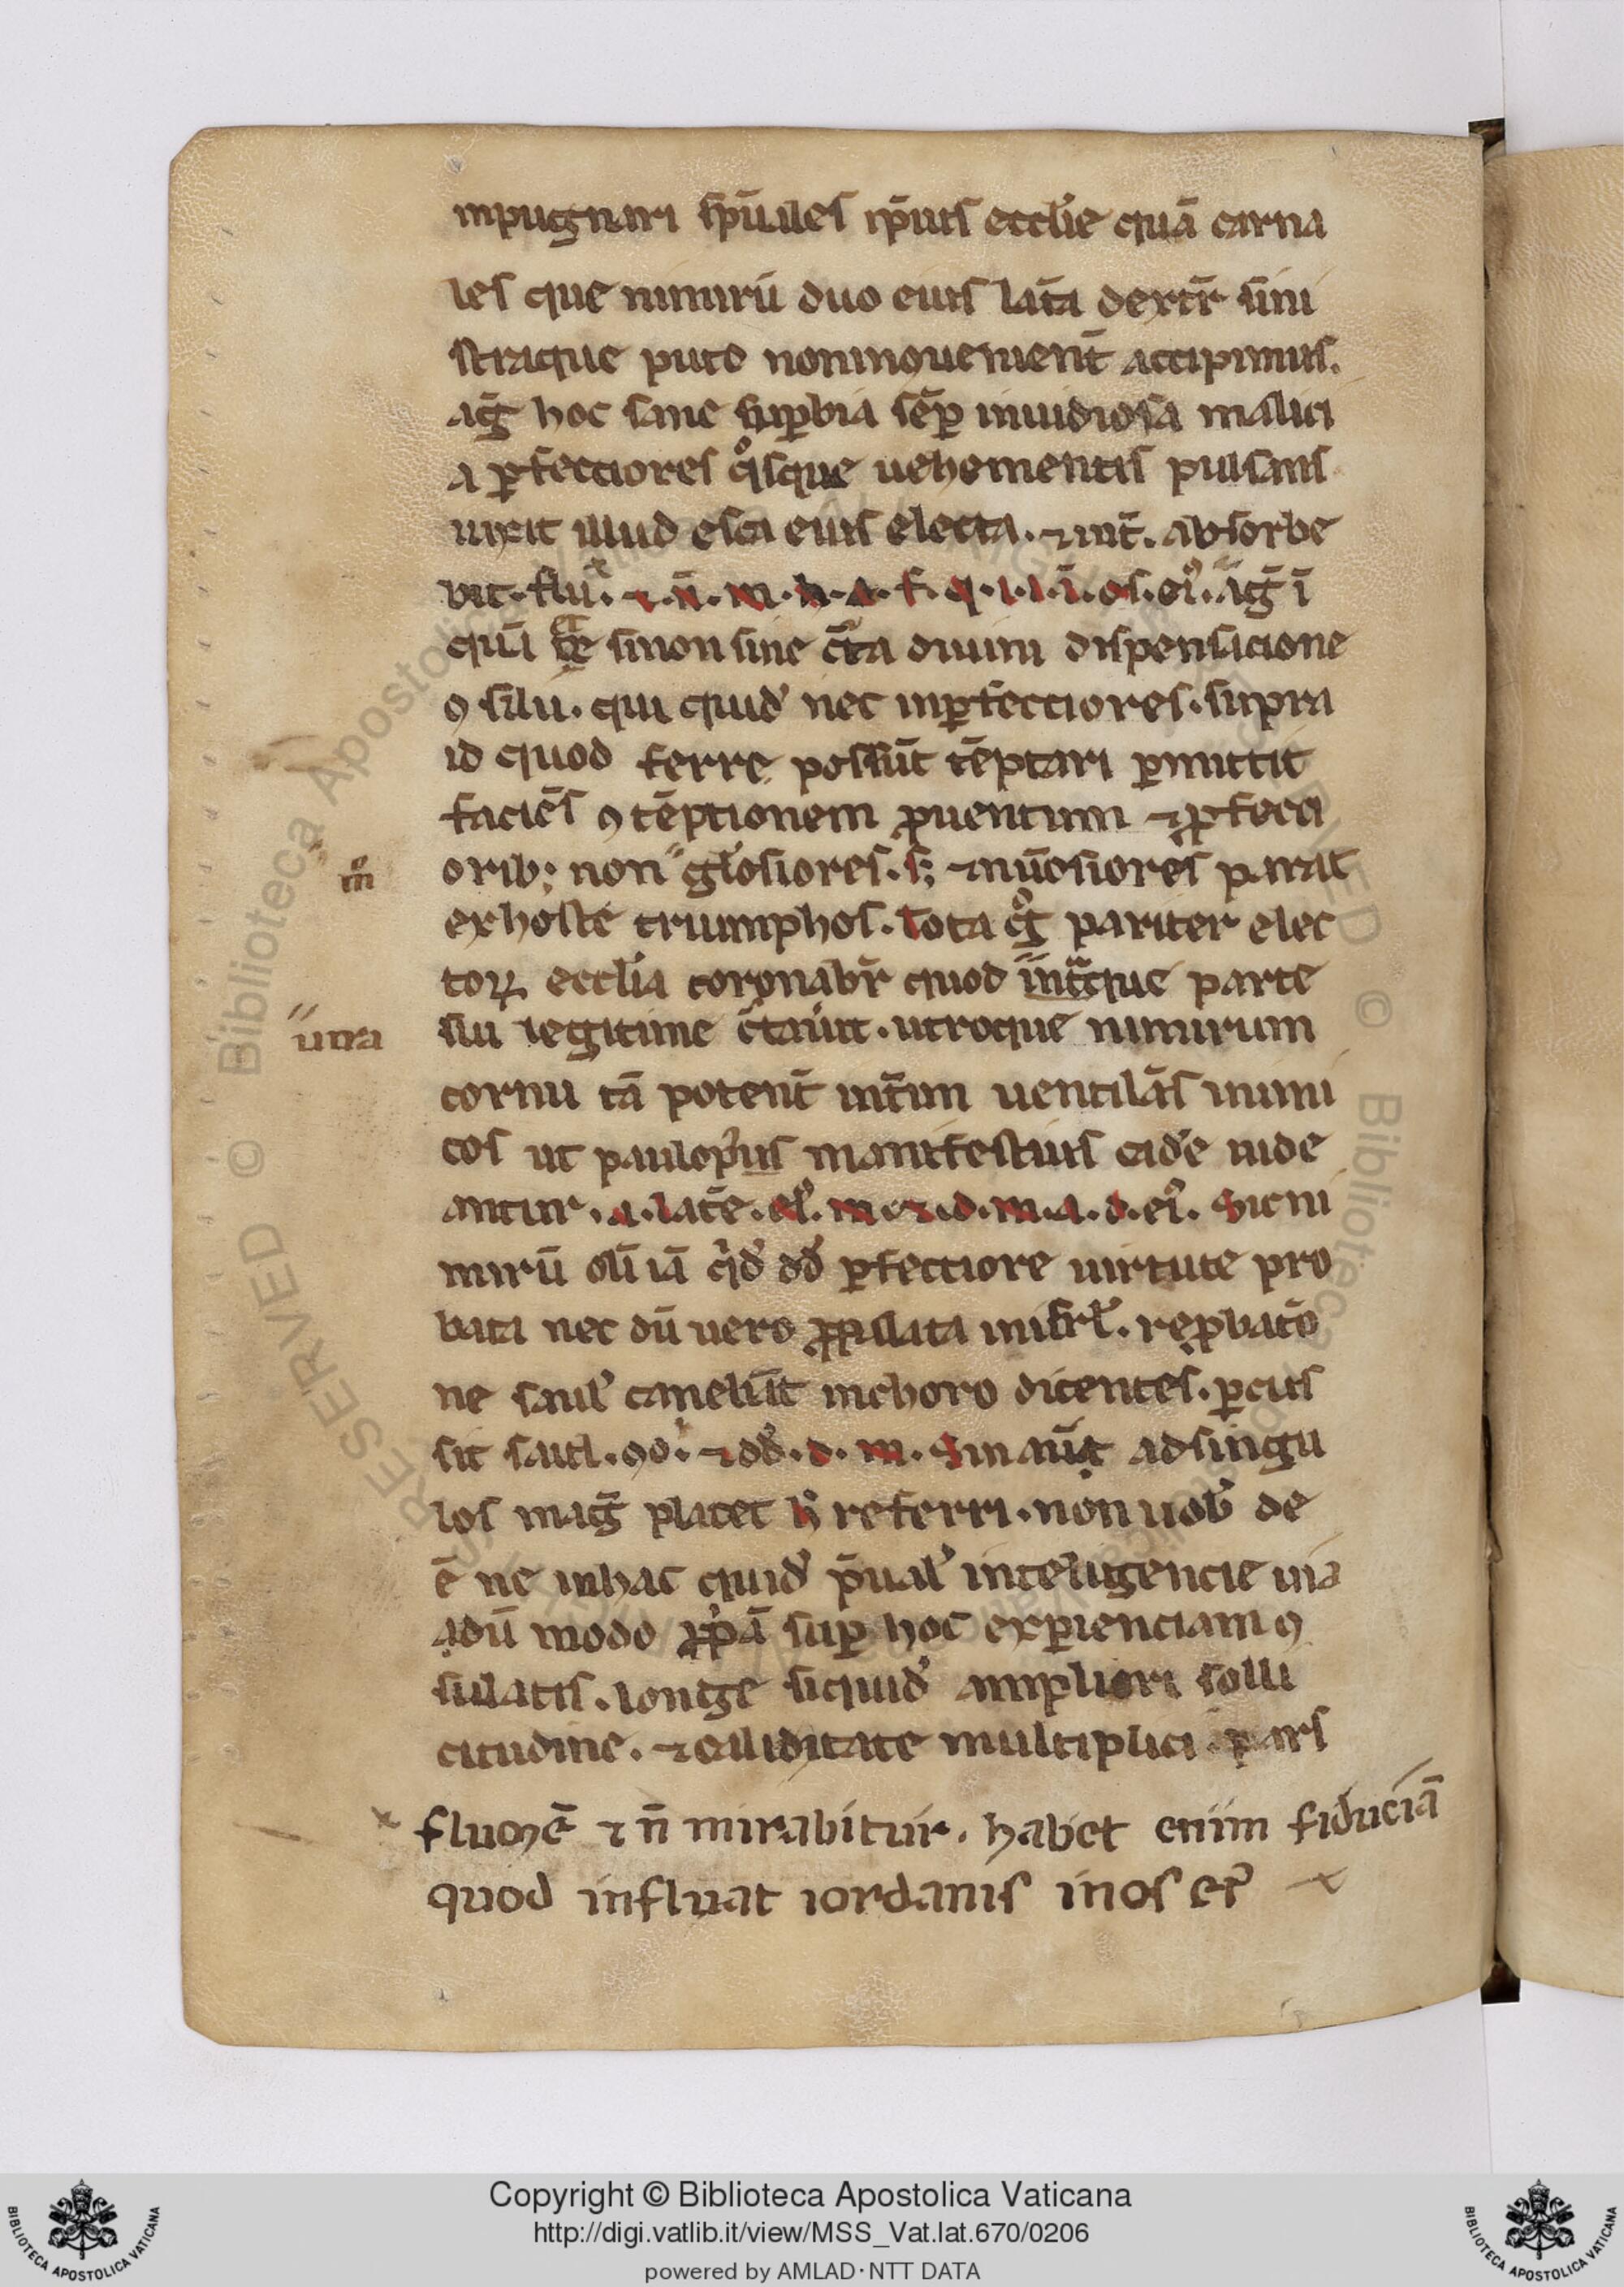 inpugnari sp̄uales ip̄ius eccl̓ie quā carna
les que nimirū duo eius lat̄a dextr̄ sīni
straque puto noninqueniēnt accipimus.
aḡ hoc sane suꝑbia sēꝑ inuidiosa malici
a ꝑfectiores q̊sque uehementiꝰ pulsans
uixit illud esca eius electa. ⁊ int̄. absorbe
bit. flū. ⁊. n̄. m. h. a. f. q. i. i. ī. os. ei᾽. aḡ ī
quā et si non sine c̄ta diuini dispensacione
ꝯsilii. qui quid᾽ nec inꝑfectiores. supra
id quod ferre possūt tēptari ꝑmittit
faciēs ꝯ tēptionem ꝓuentum ⁊ ꝑfecti
orib; non gl̓osiores. s; ⁊ nūosiores parat
m̊
exhoste triumphos. Tota g̊ pariter elec
toꝝ eccl̓ia coronabr̄ quod in utͣque parte
una
sui legitime c̄tauit. utroque nimirum
cornu tā potent̄ int̄im uentilās inimi
cos ut paulop᾽ius manifestius eid᾽e uide
antur. a. lat̄e. el᾽. m. ⁊. d. m. a. d. ei᾽. Sic ni
mirū olī iā q̓d᾽ dd᾽ ꝑfectiore uirtute pro
bata nec dū uero ꝓpalata in isrl᾽. reꝓbatō
ne saul᾽ canebāt inchoro dicentes. ꝑcus
sit saul. ꝯo᾽. ⁊ dd᾽. d. m. Sin aūt adsingu
los maḡ placet h̓ referri. non uob᾽ de
ē ne inhac quid᾽ p̄ual᾽ intelligencie uia
adū modo ꝓp̓ā suꝑ hoc exꝑienciam ꝯ
sulatis. longe siquid᾽ ampliori solli
citudine. ⁊ calliditate multiplici pars
fluuiē ⁊ n̄ mirabitur. habet enim fiduciā
quod influat iordanis in os ei᾽
Copyright © Biblioteca Apostolica Vaticana
http://digi.vatlib.it/view/MSS_Vat.lat.670/0206
powered by AMLAD·NTT DATA
BIBLIOTECA APOSTOLICA VATICANA
BIBLIOTECA APOSTOLICA VATICANA